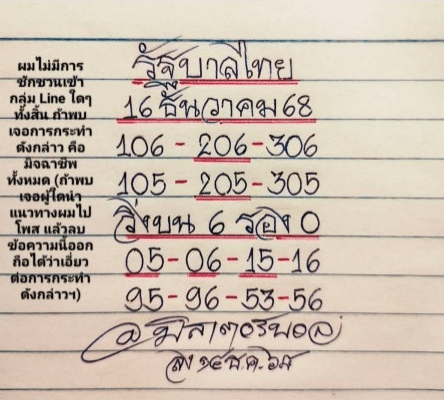 ผมไม่มีการ
ชักชวนเข้า
กลุ่ม Line ใดๆ
ทั้งสิ้น ถ้าพบ
เจอการกระทำ
ดังกล่าว คือ
มิจฉาชีพ
ทั้งหมด (ถ้าพบ
เจอผู้ใดนำ
แนวทางผมไป
โพส แล้วลบ
ข้อความนี้ออก
ถือได้ว่าเอี่ยว
ต่อการกระทำ
ดังกล่าวฯ)
รัฐบาลไทย
16 ธันวาคม 68
106 - 206 - 306
105 - 205 - 305
วิ่งบน 6 รอง 0
05 - 06 - 15 - 16
95 - 96 - 53 - 56
ลง ๑๔ ธ.ค. ๖๘